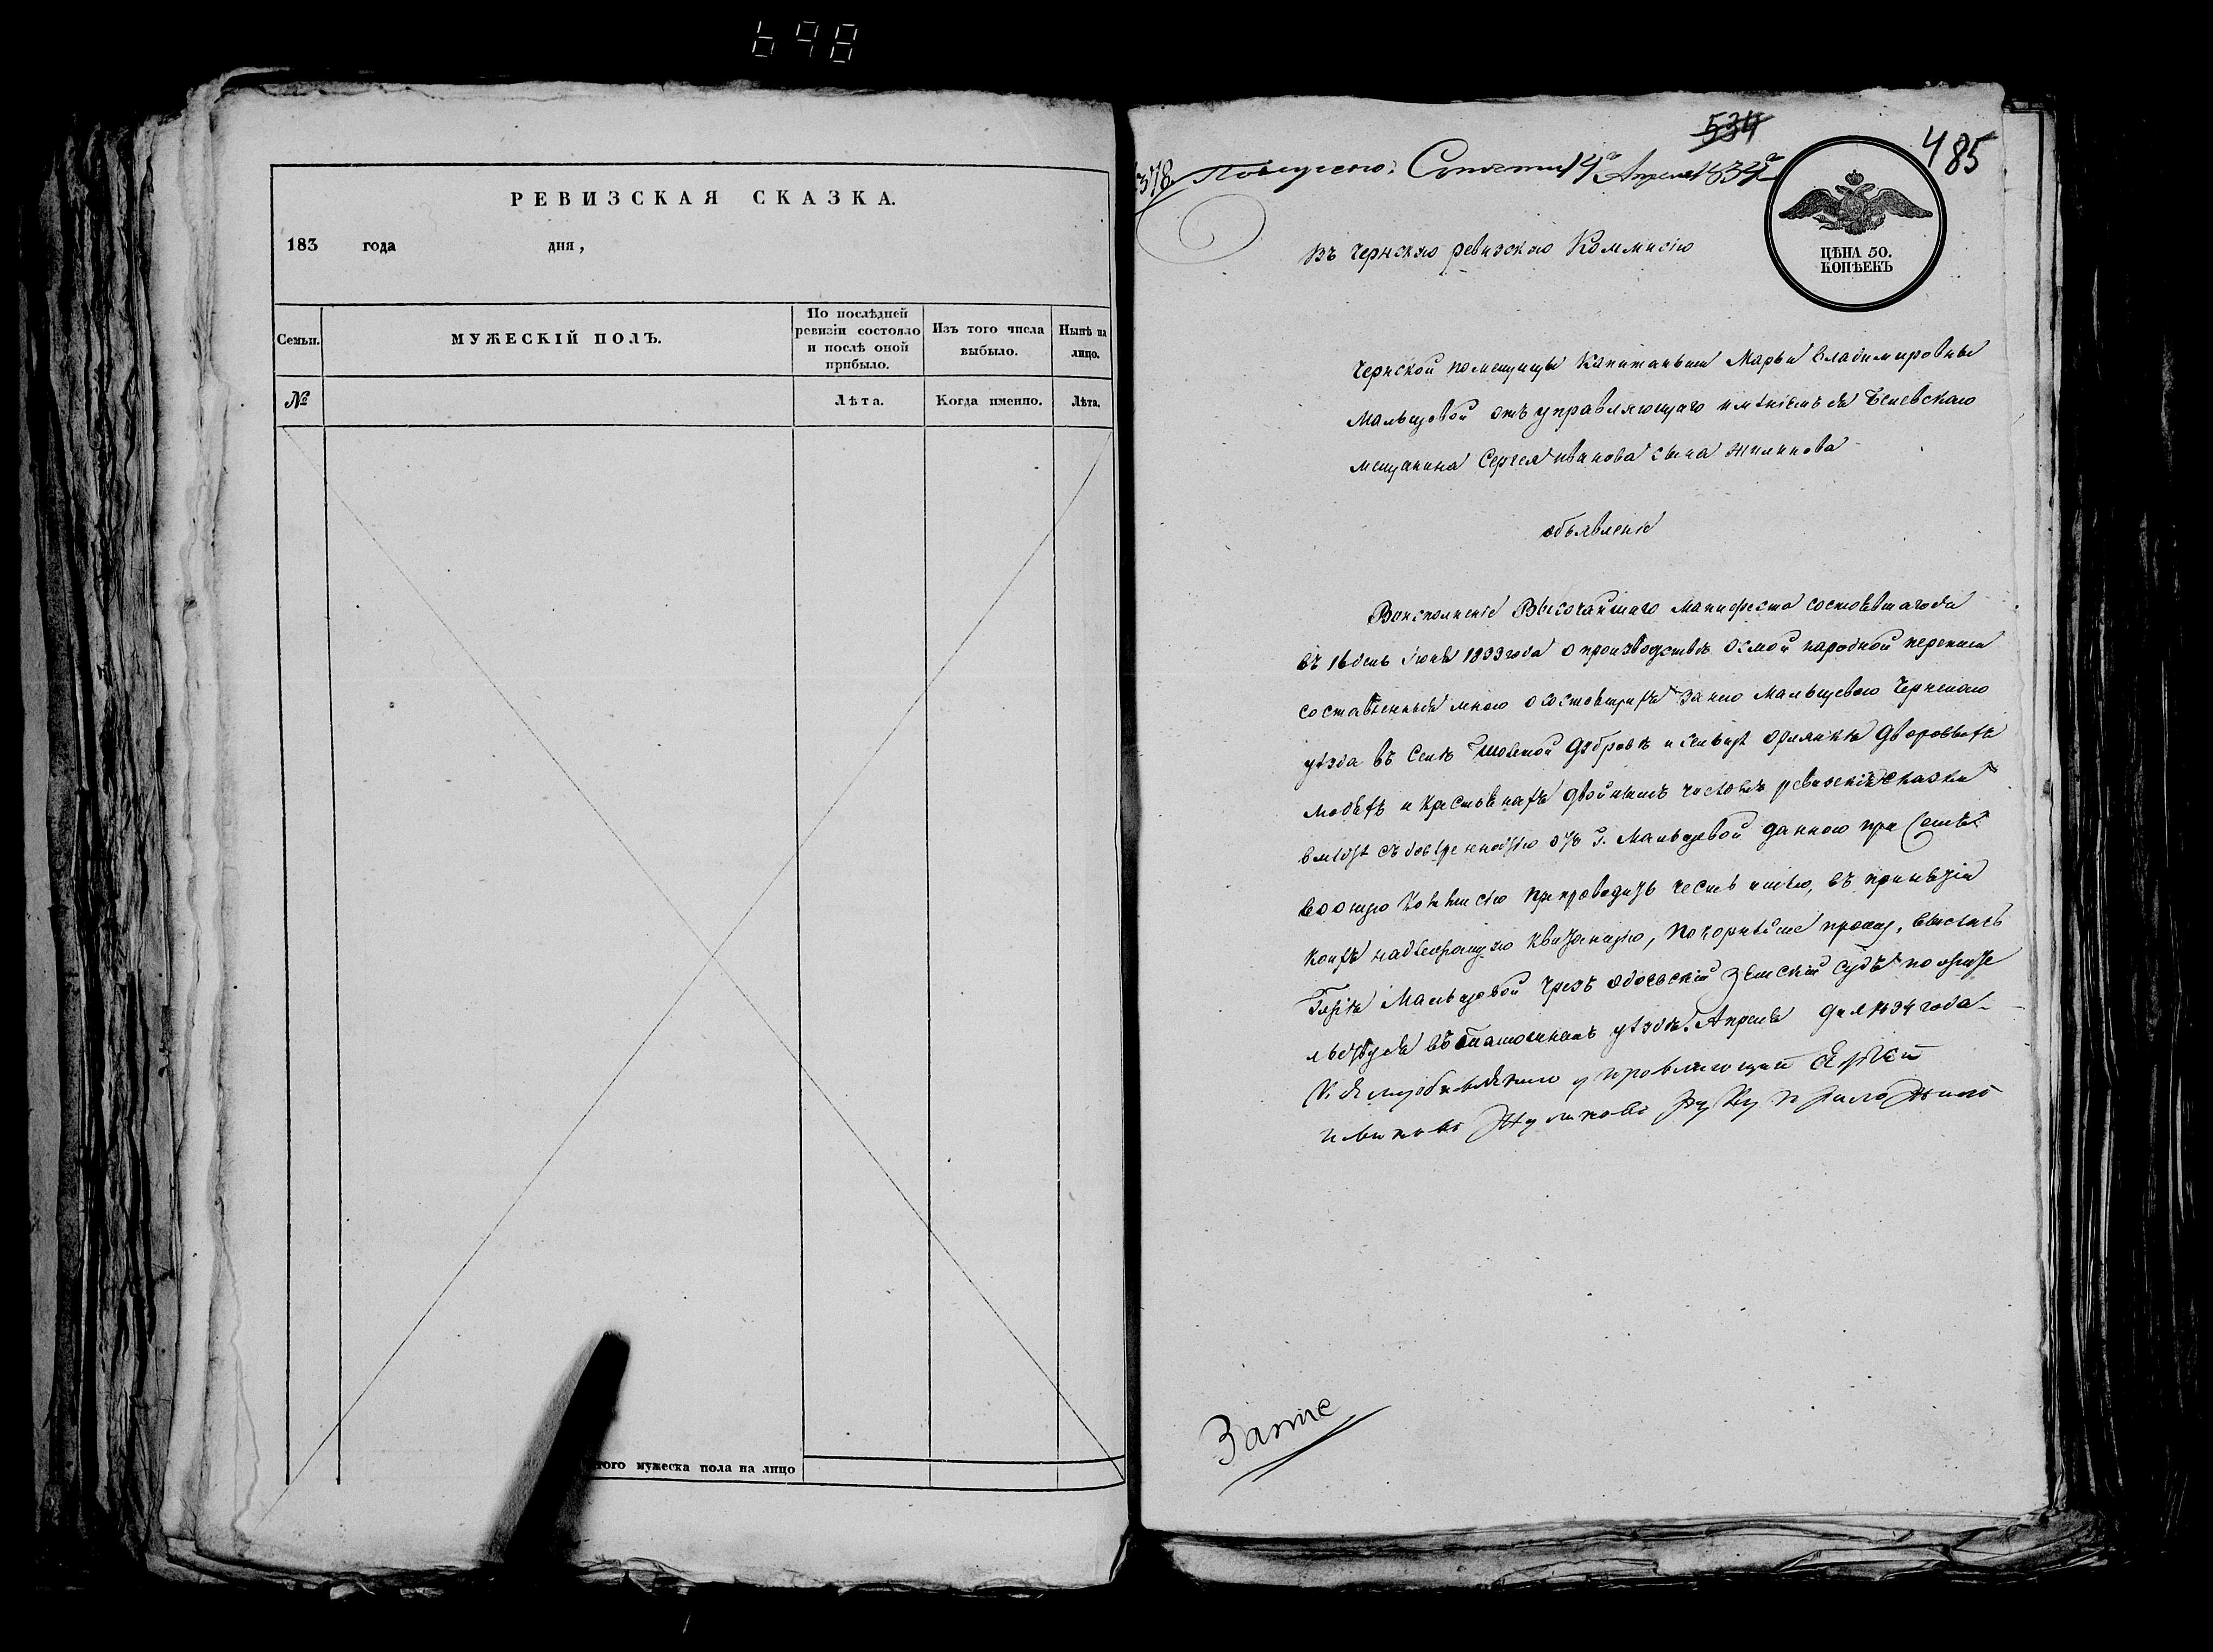 698
РЕВИЗСКАЯ СКАЗКА.
183 года дня,
Семьи.
МУЖЕСКІЙ ПОЛЪ.
По послѣдней ревизіи состояло и послѣ оной прибыло.
Изъ того числа выбыло.
Нынѣ на лицо.
№
Лѣта.
Когда именно.
Лѣта.
того мужеска пола на лицо
534
485
Получено: 14го Апреля 1834го
ЦѢНА 50.
КОПѢЕКЪ
Въ Чернскую ревизскую Коммисію
Чернской помещицы Капитанши Марьи Владимировны
Мальцовой отъ управляющаго имѣніемъ ея Белевскаго
мещанина Сергея Иванова сына Жиликова
объявленіе
Во исполненіе Высочайшаго манифеста состоявшагося
въ 16 день Июня 1833 года о производствѣ осмой народной переписи
составленныя мною о состоящихъ за нею Мальцевою Чернскаго
уѣзда въ Селѣ дворовыхъ
людѣхъ и крестьянахъ двойнымъ числомъ ревизскія сказки
вмѣстѣ съ довѣренностію отъ Г. Мальцевой данною при семъ
въ оную Коммисію препроводить честь имѣю, въ принятіи
коихъ надлежащую квитанцію, покорнѣйше прошу, выслать
Мальцовой чрезъ Одоевскій Земскій Судъ
въ уѣздѣ. Апреля дня 1834 года
К сему объявлению управляющий Сергей
Иванов руку приложил